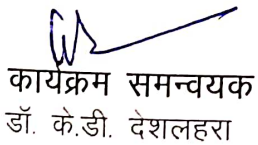 कार्यक्रम समन्वयक
डॉ. के.डी. देशलहरा